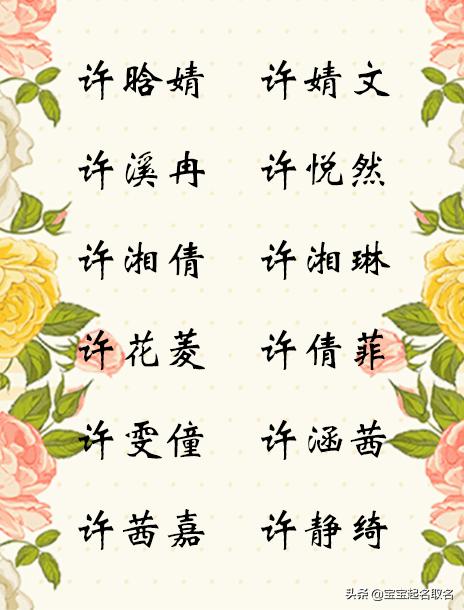 许晗婧 许婧文
许溪冉 许悦然
许湘倩 许湘琳
许花菱 许倩菲
许雯僮 许涵茜
许茜嘉 许静绮
头条 @宝宝起名取名